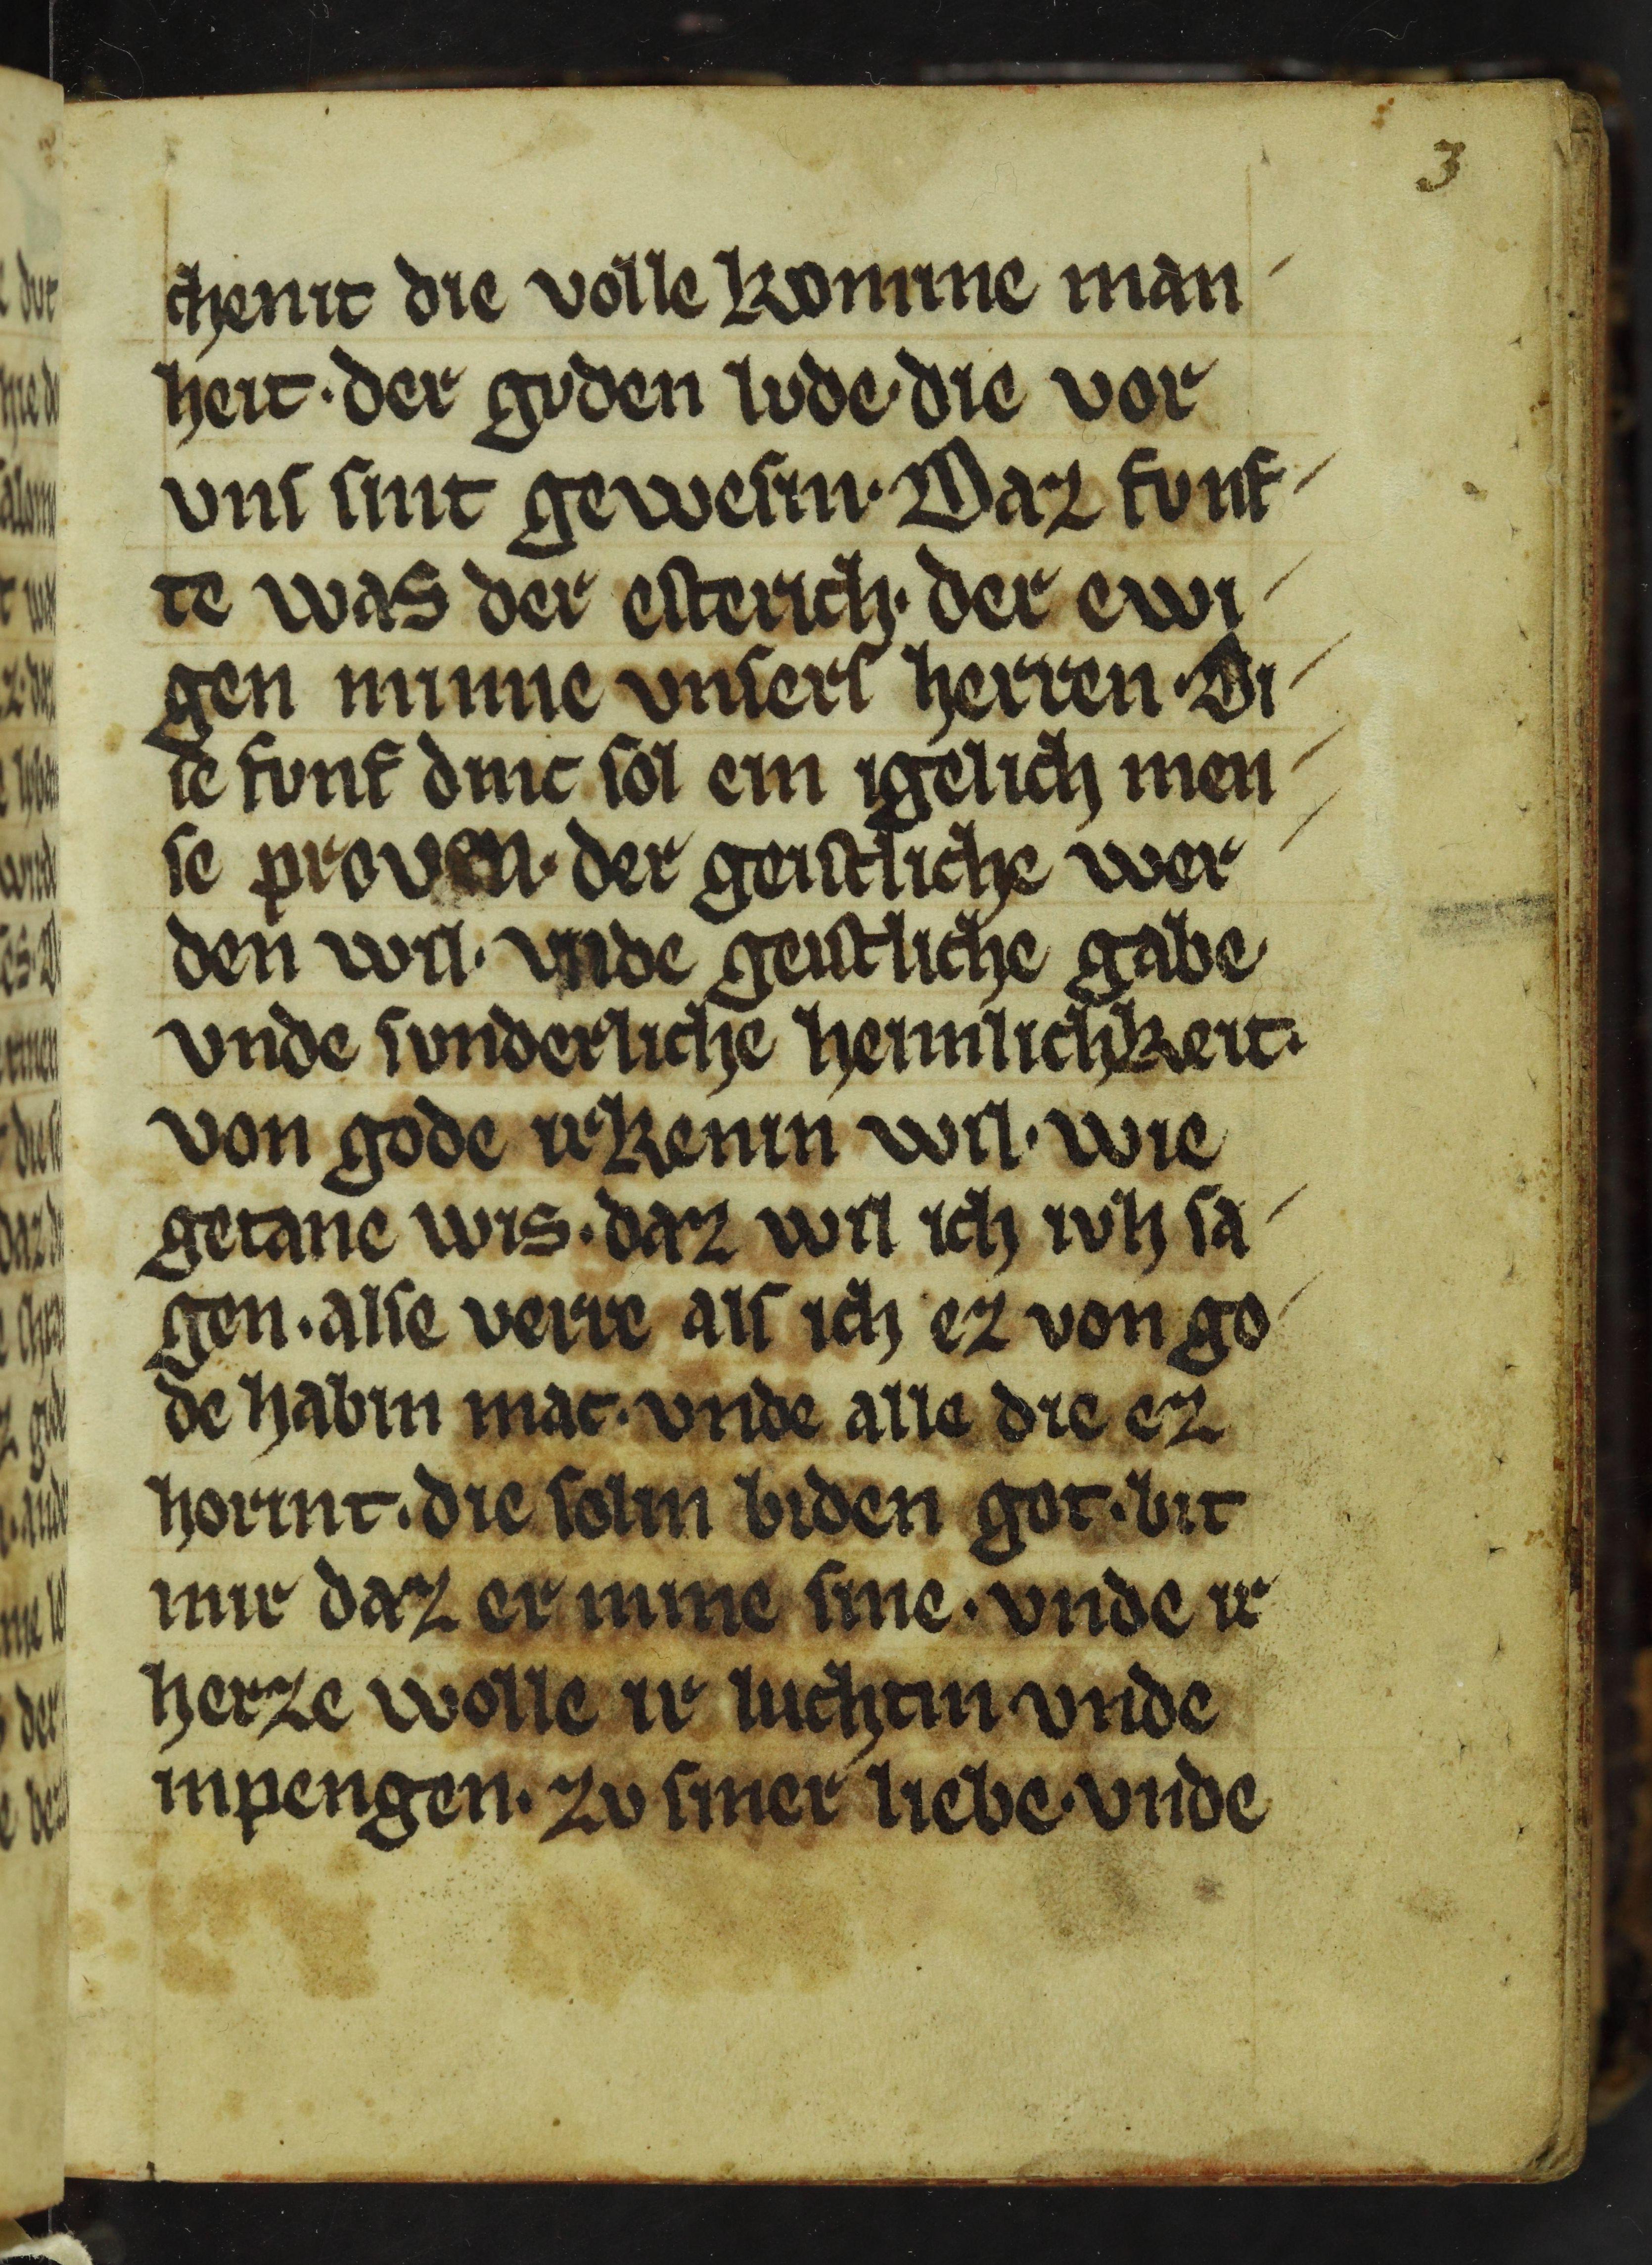 3
chenit die volle komme man-
heit. der gvden lvde. die vor
vns sint gewesin. Daz funf-
te was der esterich. der ewi-
gen minne vnsers herren. Di-
se fvnf dinc sol ein igelich men-
se proven. der geistliche wer-
den wil. vnde geistliche gabe
vnde svnderliche heimlichkeit.
von gode irkenin wil. wie
getane wis. daz wil ich ivh sa-
gen. alse verre als ich ez von go-
de habin mac. vnde alle die ez
horint. die solin biden got. bit
mir daz er mine sine. vnde ir
herze wolle ir luchtin vnde
inpengen. zv siner liebe. vnde